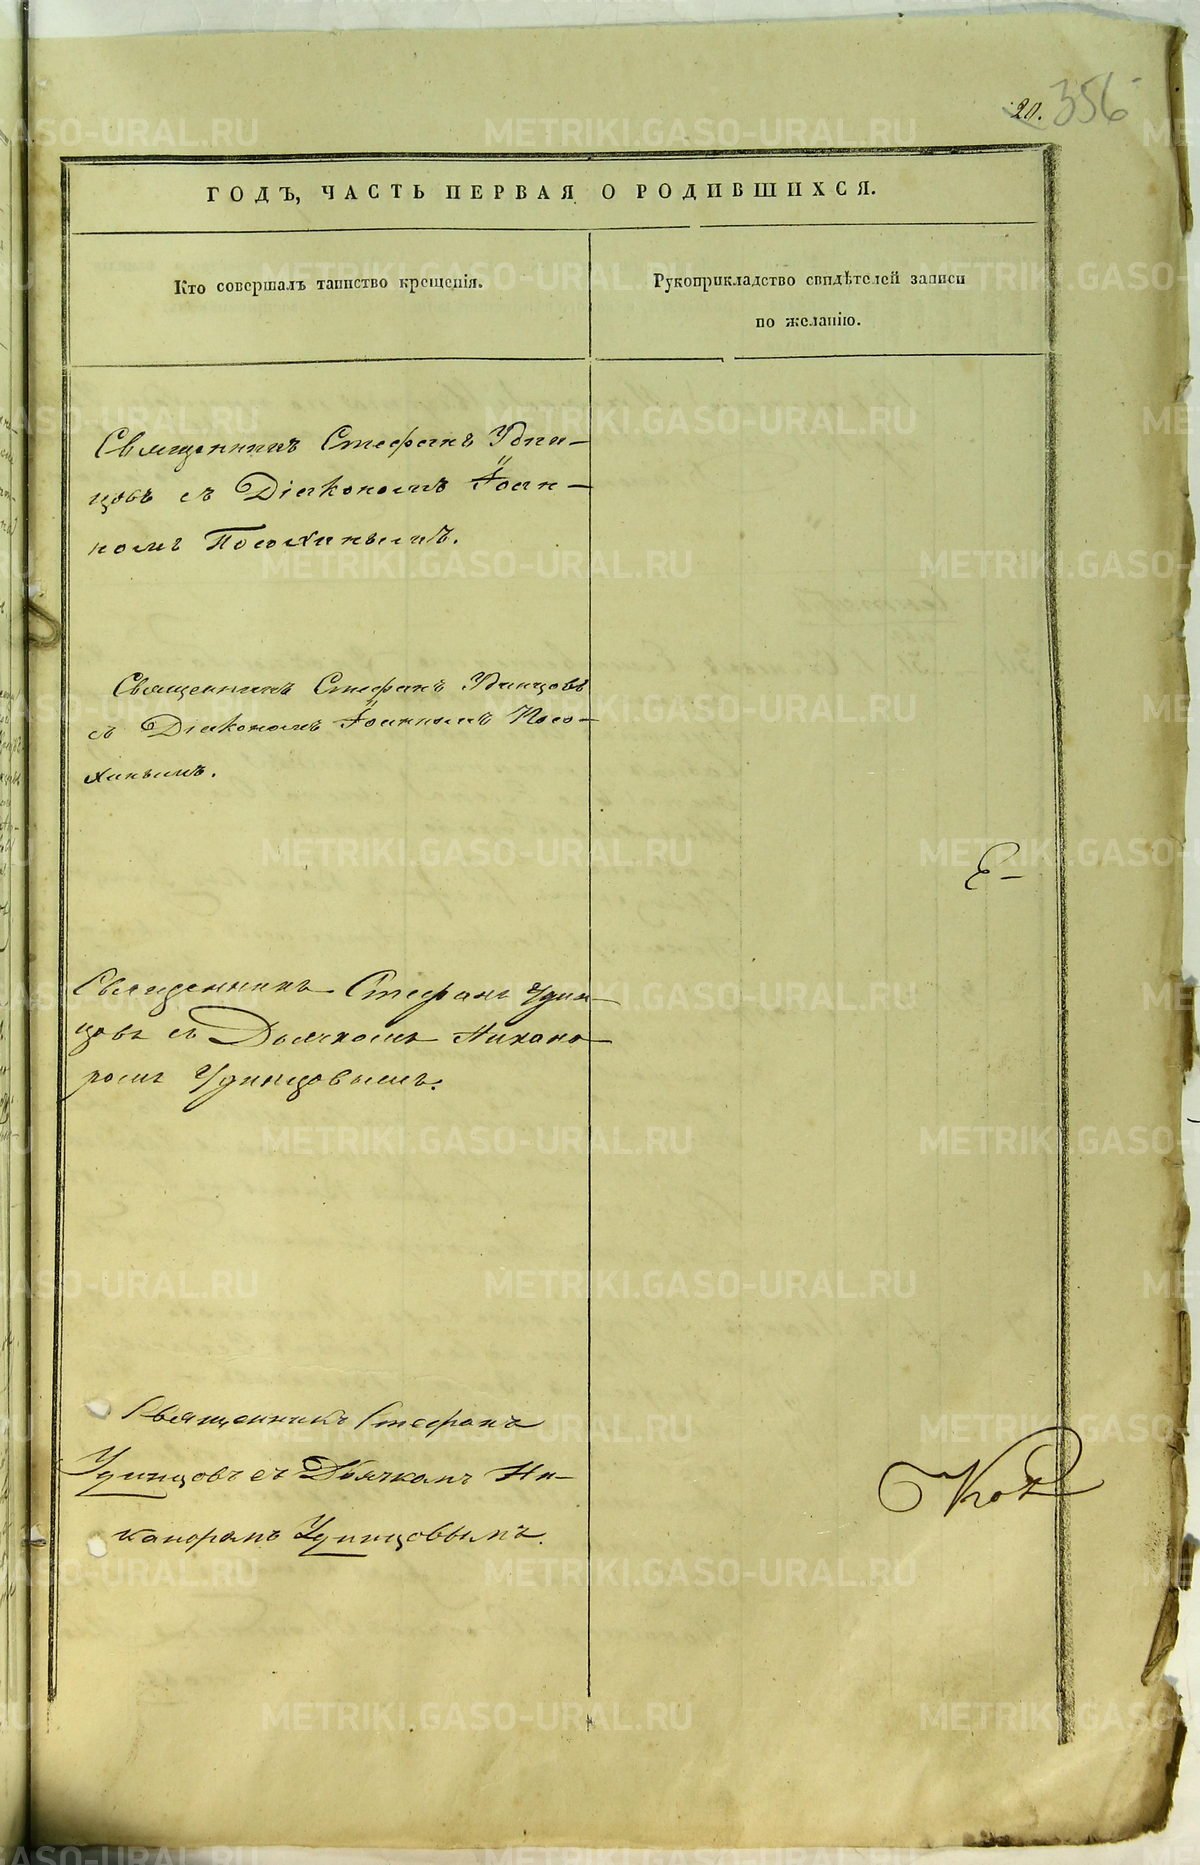 20. 356
ГОДЪ, ЧАСТЬ ПЕРВАЯ О РОДИВШИХСЯ.
Кто совершалъ таинство крещенія.
Рукоприкладство свидѣтелей записи
по желанію.
Священникъ Стефанъ Удин-
цовъ съ Діакономъ Іоан-
номъ Посохинымъ.
Священникъ Стефанъ Удинцовъ
съ Діакономъ Іоанномъ Посо-
хинымъ.
Священникъ Стефанъ Удин-
цовъ съ Дьячкомъ Никано-
ромъ Удинцовымъ.
Священникъ Стефанъ
Удинцовъ съ Дьячкомъ Ни-
каноромъ Удинцовымъ.
METRIKI.GASO-URAL.RU